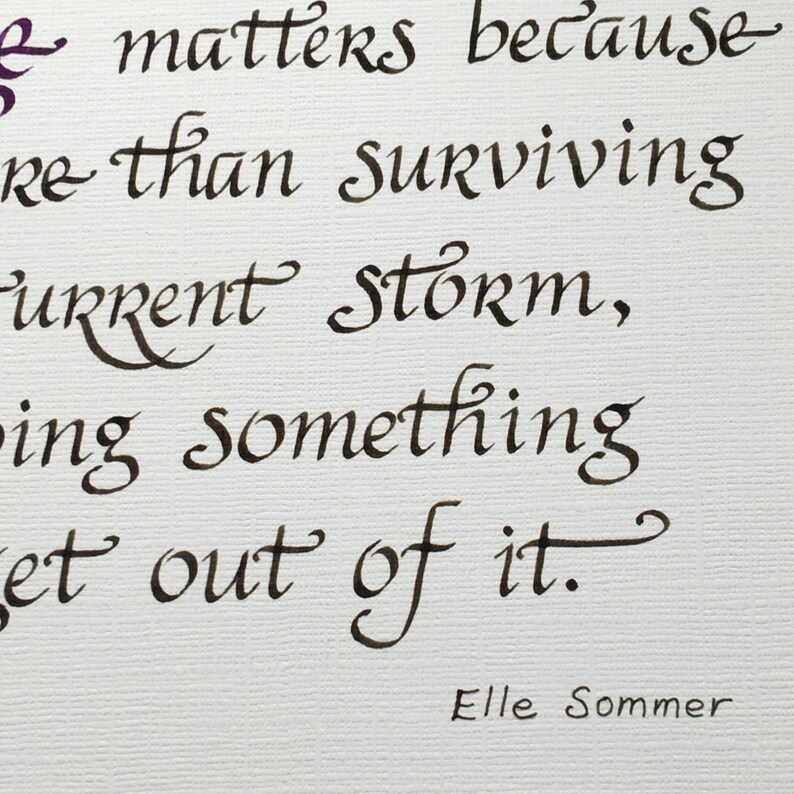 matters because
than surviving
current storm,
something
out of it.
Elle Sommer